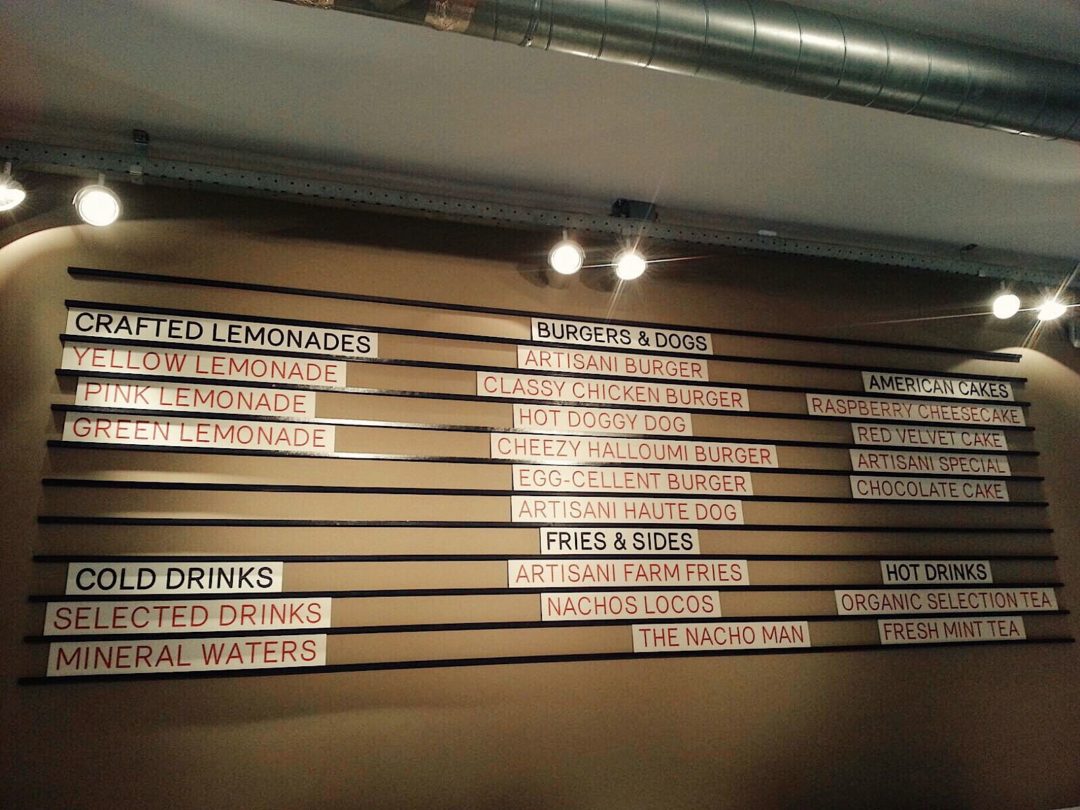 CRAFTED LEMONADES
YELLOW LEMONADE
PINK LEMONADE
GREEN LEMONADE
COLD DRINKS
SELECTED DRINKS
MINERAL WATERS
BURGERS & DOGS
ARTISANI BURGER
CLASSY CHICKEN BURGER
HOT DOGGY DOG
CHEEZY HALLOUMI BURGER
EGG-CELLENT BURGER
ARTISANI HAUTE DOG
FRIES & SIDES
ARTISANI FARM FRIES
NACHOS LOCOS
THE NACHO MAN
AMERICAN CAKES
RASPBERRY CHEESECAKE
RED VELVET CAKE
ARTISANI SPECIAL
CHOCOLATE CAKE
HOT DRINKS
ORGANIC SELECTION TEA
FRESH MINT TEA